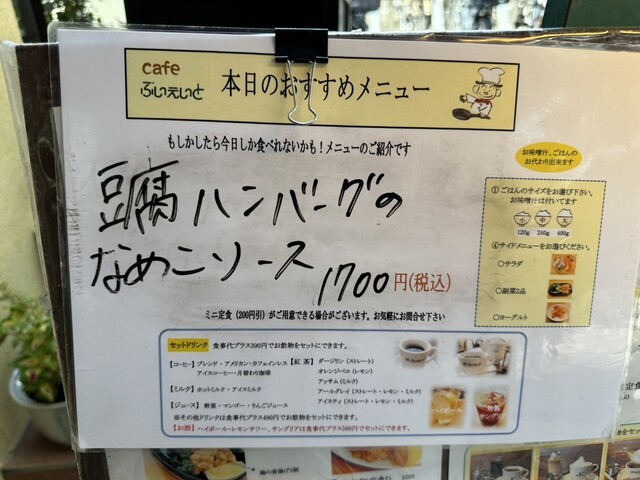 cafe
ぶいえいと
本日のおすすめメニュー
もしかしたら今日しか食べれないかも！メニューのご紹介です
お味噌汁、ごはんの
お代わり出来ます
豆腐ハンバーグの
なめこソース
1700円(税込)
①ごはんのサイズをお選び下さい。
お味噌汁は付いてます
小 中 大
120g 240g 400g
④サイドメニューをお選びください。
○サラダ
○副菜2品
○ヨーグルト
ミニ定食（200円引）がご用意できる場合がございます。お気軽にお問合せ下さい
セットドリンク 食事代プラス390円でお飲物をセットにできます。
【コーヒー】ブレンド・アメリカン・カフェインレス
アイスコーヒー・月替わり珈琲
【紅茶】ダージリン（ストレート）
オレンジペコ（レモン）
アッサム（ミルク）
アールグレイ（ストレート・レモン・ミルク）
アイスティ（ストレート・レモン・ミルク）
【ミルク】ホットミルク・アイスミルク
【ジュース】野菜・マンゴー・りんごジュース
※その他ドリンクは食事代プラス490円でお飲物をセットにできます。
【お酒】ハイボール・レモンサワー、サングリアは食事代プラス590円でセットにできます。
ハイボール